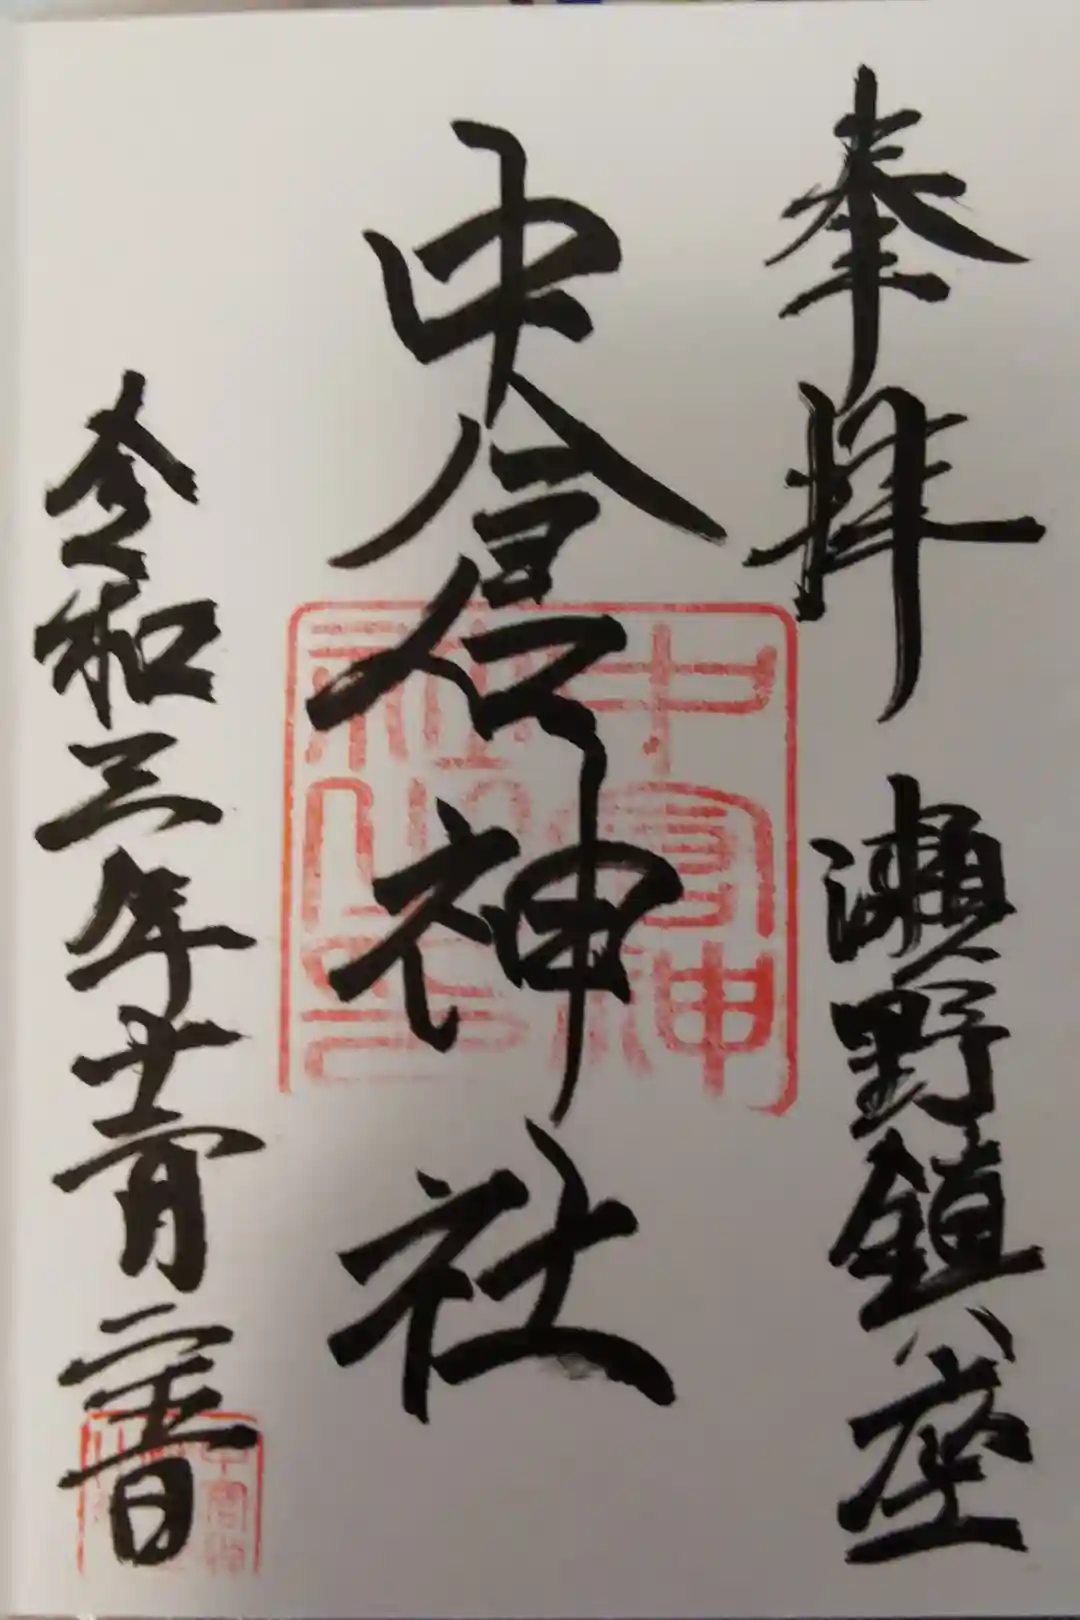 奉拝　瀬野鎮座
中倉神社
令和三年十一月二十三日
中倉神
社之印